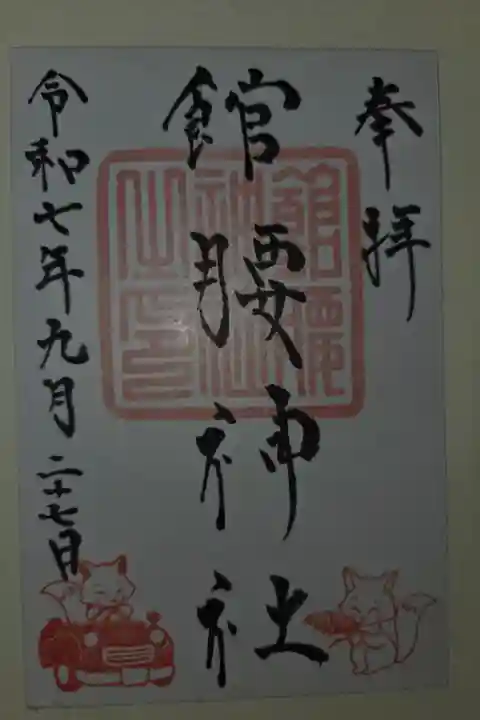 奉拝
館腰神社
令和七年九月二十七日
館腰神社之印